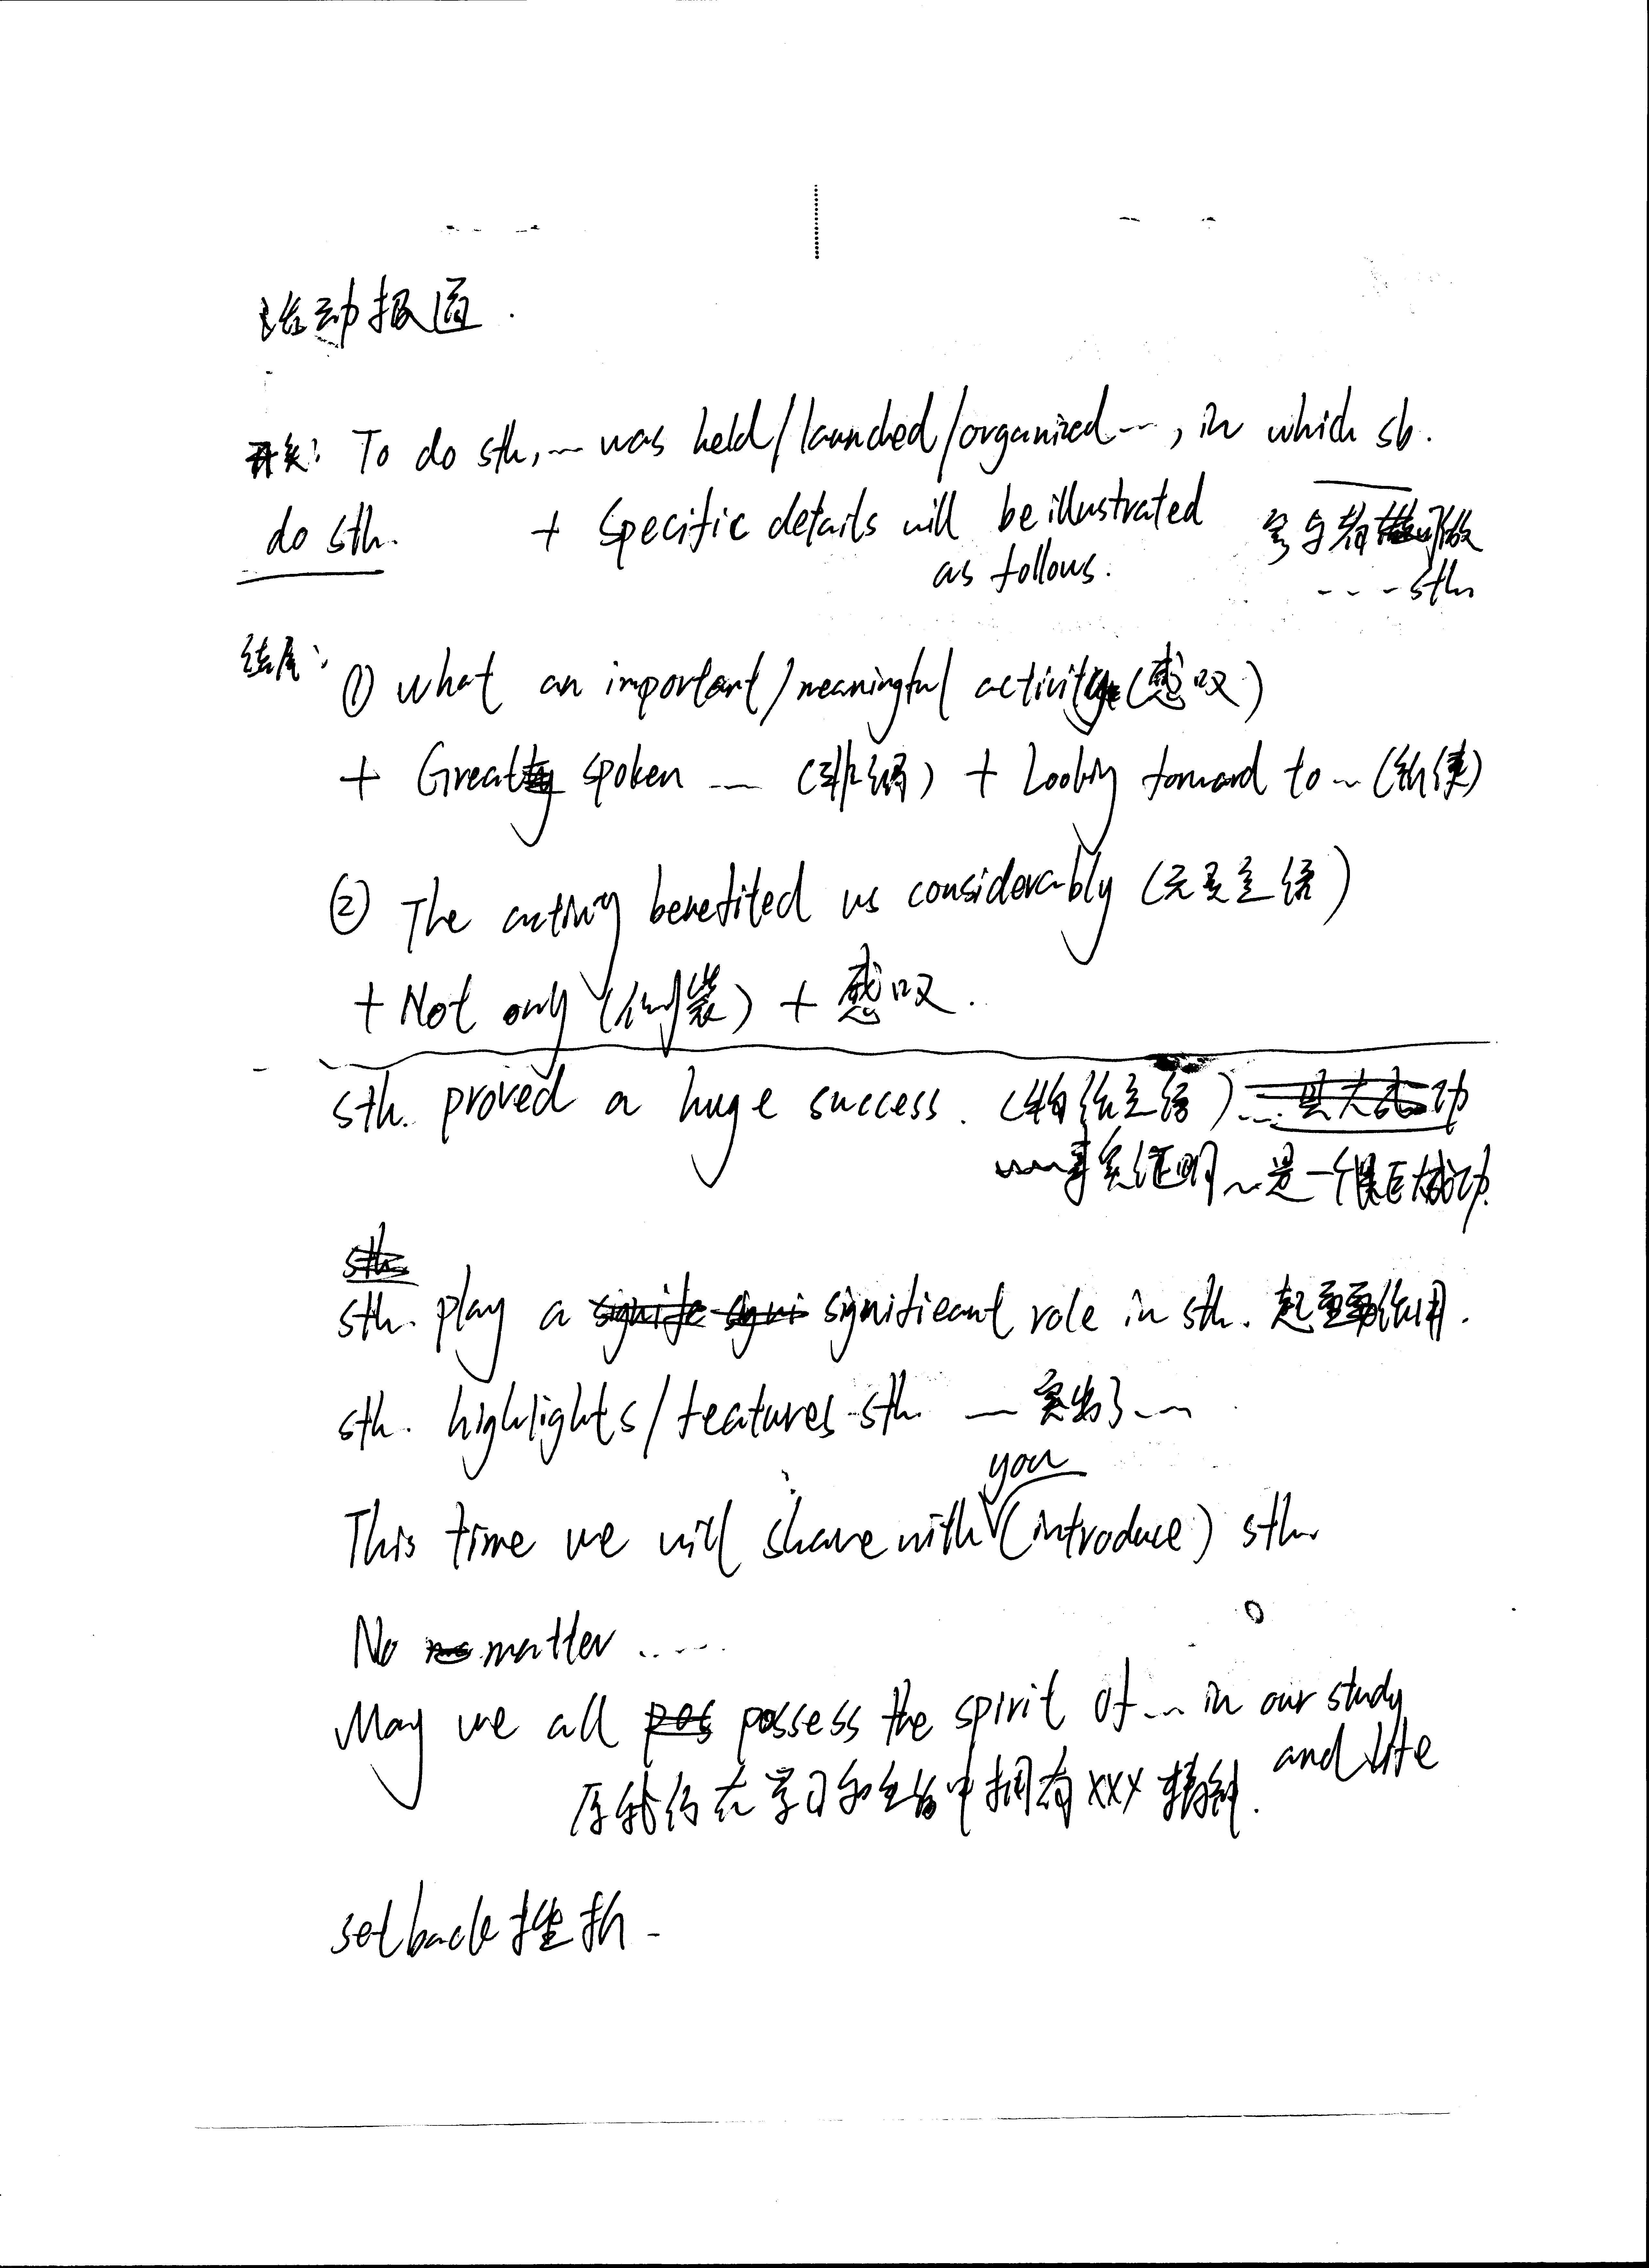 活动报道.
开头: To do sth, ... was held/launched/organized ..., in which sb.
do sth. + Specific details will be illustrated
as follows.
参与者所做
....sth
结尾:
① what an important/meaningful activity (感叹)
+ Greatly spoken ... (非谓) + Looking forward to ... (祈使)
② The activity benefited us considerably (无灵主语)
+ Not only (倒装) + 感叹.
sth. proved a huge success. (物做主语)
……事实证明~是一个巨大成功.
sth. play a significant role in sth. 起重要作用.
sth. highlights/features sth. ... 突出了...
This time we will share with you (introduce) sth.
No matter .....
May we all possess the spirit of ... in our study
and life
在学习和生活中拥有xxx精神.
setback 挫折